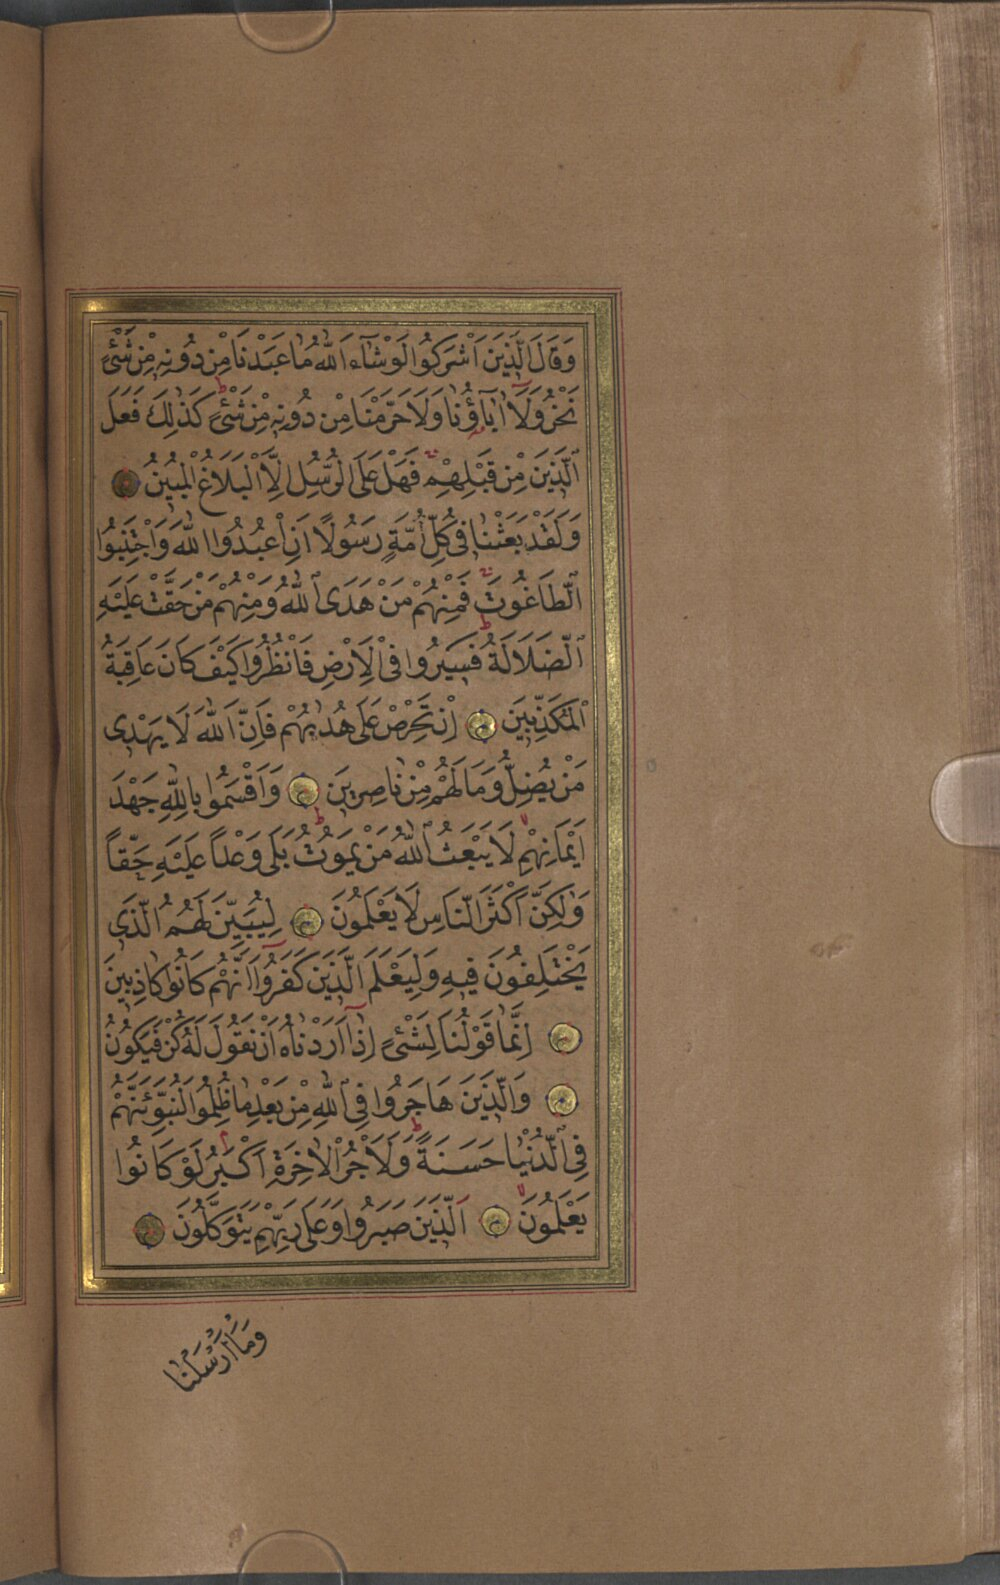 وَقَالَ الَّذِينَ اَشْرَكُوا لَوْ شَآءَ اللّٰهُ مَا عَبَدْنَا مِنْ دُونِهِ مِنْ شَيْءٍ
نَحْنُ وَلَآ اٰبَآؤُنَا وَلَا حَرَّمْنَا مِنْ دُونِهِ مِنْ شَيْءٍ كَذٰلِكَ فَعَلَ
الَّذِينَ مِنْ قَبْلِهِمْ فَهَلْ عَلَى الرُّسُلِ اِلَّا الْبَلَاغُ الْمُبِينُ
وَلَقَدْ بَعَثْنَا فِى كُلِّ اُمَّةٍ رَسُولًا اَنِ اعْبُدُوا اللّٰهَ وَاجْتَنِبُوا
الطَّاغُوتَ فَمِنْهُمْ مَنْ هَدَى اللّٰهُ وَمِنْهُمْ مَنْ حَقَّتْ عَلَيْهِ
الضَّلَالَةُ فَسِيرُوا فِى الْاَرْضِ فَانْظُرُوا كَيْفَ كَانَ عَاقِبَةُ
الْمُكَذِّبِينَ اِنْ تَحْرِصْ عَلَى هُدٰيهُمْ فَاِنَّ اللّٰهَ لَا يَهْدِى
مَنْ يُضِلُّ وَمَا لَهُمْ مِنْ نَاصِرِينَ وَاَقْسَمُوا بِاللّٰهِ جَهْدَ
اَيْمَانِهِمْ لَا يَبْعَثُ اللّٰهُ مَنْ يَمُوتُ بَلَى وَعْدًا عَلَيْهِ حَقًّا
وَلٰكِنَّ اَكْثَرَ النَّاسِ لَا يَعْلَمُونَ لِيُبَيِّنَ لَهُمُ الَّذِى
يَخْتَلِفُونَ فِيهِ وَلِيَعْلَمَ الَّذِينَ كَفَرُوا اَنَّهُمْ كَانُوا كَاذِبِينَ
اِنَّمَا قَوْلُنَا لِشَيْءٍ اِذَا اَرَدْنَاهُ اَنْ نَقُولَ لَهُ كُنْ فَيَكُونُ
وَالَّذِينَ هَاجَرُوا فِى اللّٰهِ مِنْ بَعْدِ مَا ظُلِمُوا لَنُبَوِّئَنَّهُمْ
فِى الدُّنْيَا حَسَنَةً وَلَاَجْرُ الْاٰخِرَةِ اَكْبَرُ لَوْ كَانُوا
يَعْلَمُونَ اَلَّذِينَ صَبَرُوا وَعَلَى رَبِّهِمْ يَتَوَكَّلُونَ
وَمَآ اَرْسَلْنَا